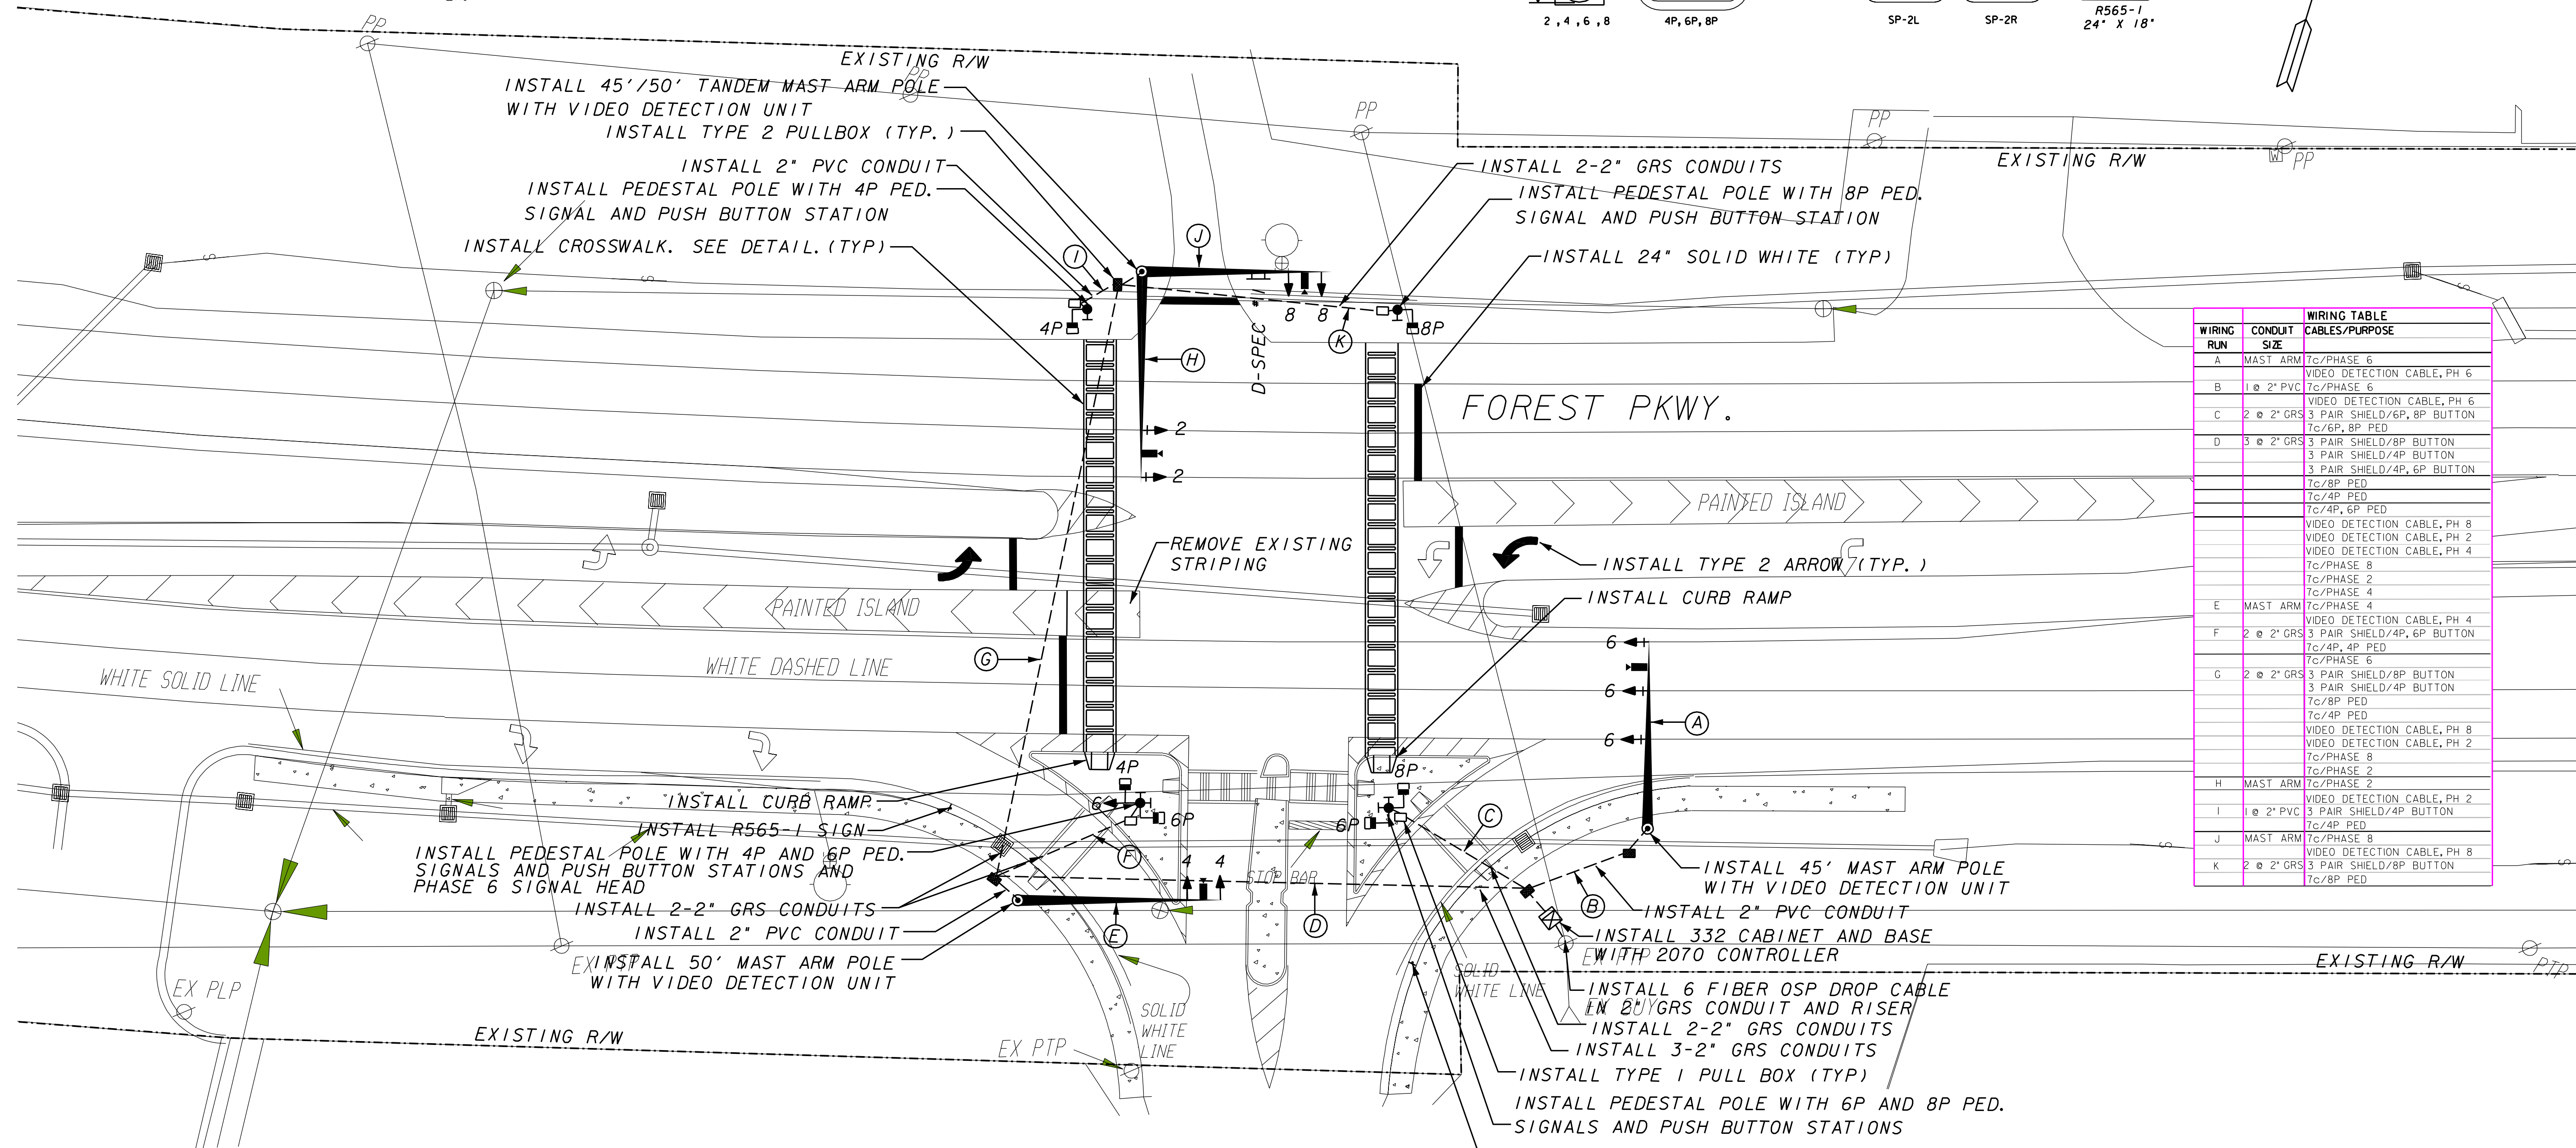 2 , 4 , 6 , 8
4P, 6P, 8P
SP-2L
SP-2R
R565-1
24" X 18"
PP
EXISTING R/W
PP
INSTALL 45'/50' TANDEM MAST ARM POLE
WITH VIDEO DETECTION UNIT
INSTALL TYPE 2 PULLBOX (TYP.)
INSTALL 2" PVC CONDUIT
INSTALL PEDESTAL POLE WITH 4P PED.
SIGNAL AND PUSH BUTTON STATION
INSTALL CROSSWALK. SEE DETAIL. (TYP)
PP
PP
EXISTING R/W
W
PP
INSTALL 2-2" GRS CONDUITS
INSTALL PEDESTAL POLE WITH 8P PED.
SIGNAL AND PUSH BUTTON STATION
INSTALL 24" SOLID WHITE (TYP)
S
S
S
I
J
4P
8
8
8P
K
H
D-SPEC #
2
2
FOREST PKWY.
PAINTED ISLAND
REMOVE EXISTING
STRIPING
INSTALL TYPE 2 ARROW (TYP.)
INSTALL CURB RAMP
PAINTED ISLAND
G
WHITE DASHED LINE
WHITE SOLID LINE
6
6
6
A
4P
8P
INSTALL CURB RAMP
6
6P
6P
C
INSTALL R565-1 SIGN
INSTALL PEDESTAL POLE WITH 4P AND 6P PED.
SIGNALS AND PUSH BUTTON STATIONS AND
PHASE 6 SIGNAL HEAD
F
4
4
STOP BAR
INSTALL 2-2" GRS CONDUITS
INSTALL 2" PVC CONDUIT
E
D
B
INSTALL 50' MAST ARM POLE
WITH VIDEO DETECTION UNIT
EX PTP
INSTALL 45' MAST ARM POLE
WITH VIDEO DETECTION UNIT
INSTALL 2" PVC CONDUIT
INSTALL 332 CABINET AND BASE
WITH 2070 CONTROLLER
EX PTP
S
S
EXISTING R/W
PTP
SOLID
WHITE LINE
INSTALL 6 FIBER OSP DROP CABLE
IN 2" GRS CONDUIT AND RISER
EX GUY
INSTALL 2-2" GRS CONDUITS
INSTALL 3-2" GRS CONDUITS
INSTALL TYPE 1 PULL BOX (TYP)
INSTALL PEDESTAL POLE WITH 6P AND 8P PED.
SIGNALS AND PUSH BUTTON STATIONS
EX PLP
EXISTING R/W
EX PTP
SOLID
WHITE
LINE
WIRING TABLE
WIRING CONDUIT CABLES/PURPOSE
RUN SIZE
A MAST ARM 7c/PHASE 6
VIDEO DETECTION CABLE, PH 6
B 1 @ 2" PVC 7c/PHASE 6
VIDEO DETECTION CABLE, PH 6
C 2 @ 2" GRS 3 PAIR SHIELD/6P, 8P BUTTON
7c/6P, 8P PED
D 3 @ 2" GRS 3 PAIR SHIELD/8P BUTTON
3 PAIR SHIELD/4P BUTTON
3 PAIR SHIELD/4P, 6P BUTTON
7c/8P PED
7c/4P PED
7c/4P, 6P PED
VIDEO DETECTION CABLE, PH 8
VIDEO DETECTION CABLE, PH 2
VIDEO DETECTION CABLE, PH 4
7c/PHASE 8
7c/PHASE 2
7c/PHASE 4
E MAST ARM 7c/PHASE 4
VIDEO DETECTION CABLE, PH 4
F 2 @ 2" GRS 3 PAIR SHIELD/4P, 6P BUTTON
7c/4P, 4P PED
7c/PHASE 6
G 2 @ 2" GRS 3 PAIR SHIELD/8P BUTTON
3 PAIR SHIELD/4P BUTTON
7c/8P PED
7c/4P PED
VIDEO DETECTION CABLE, PH 8
VIDEO DETECTION CABLE, PH 2
7c/PHASE 8
7c/PHASE 2
H MAST ARM 7c/PHASE 2
VIDEO DETECTION CABLE, PH 2
I 1 @ 2" PVC 3 PAIR SHIELD/4P BUTTON
7c/4P PED
J MAST ARM 7c/PHASE 8
VIDEO DETECTION CABLE, PH 8
K 2 @ 2" GRS 3 PAIR SHIELD/8P BUTTON
7c/8P PED